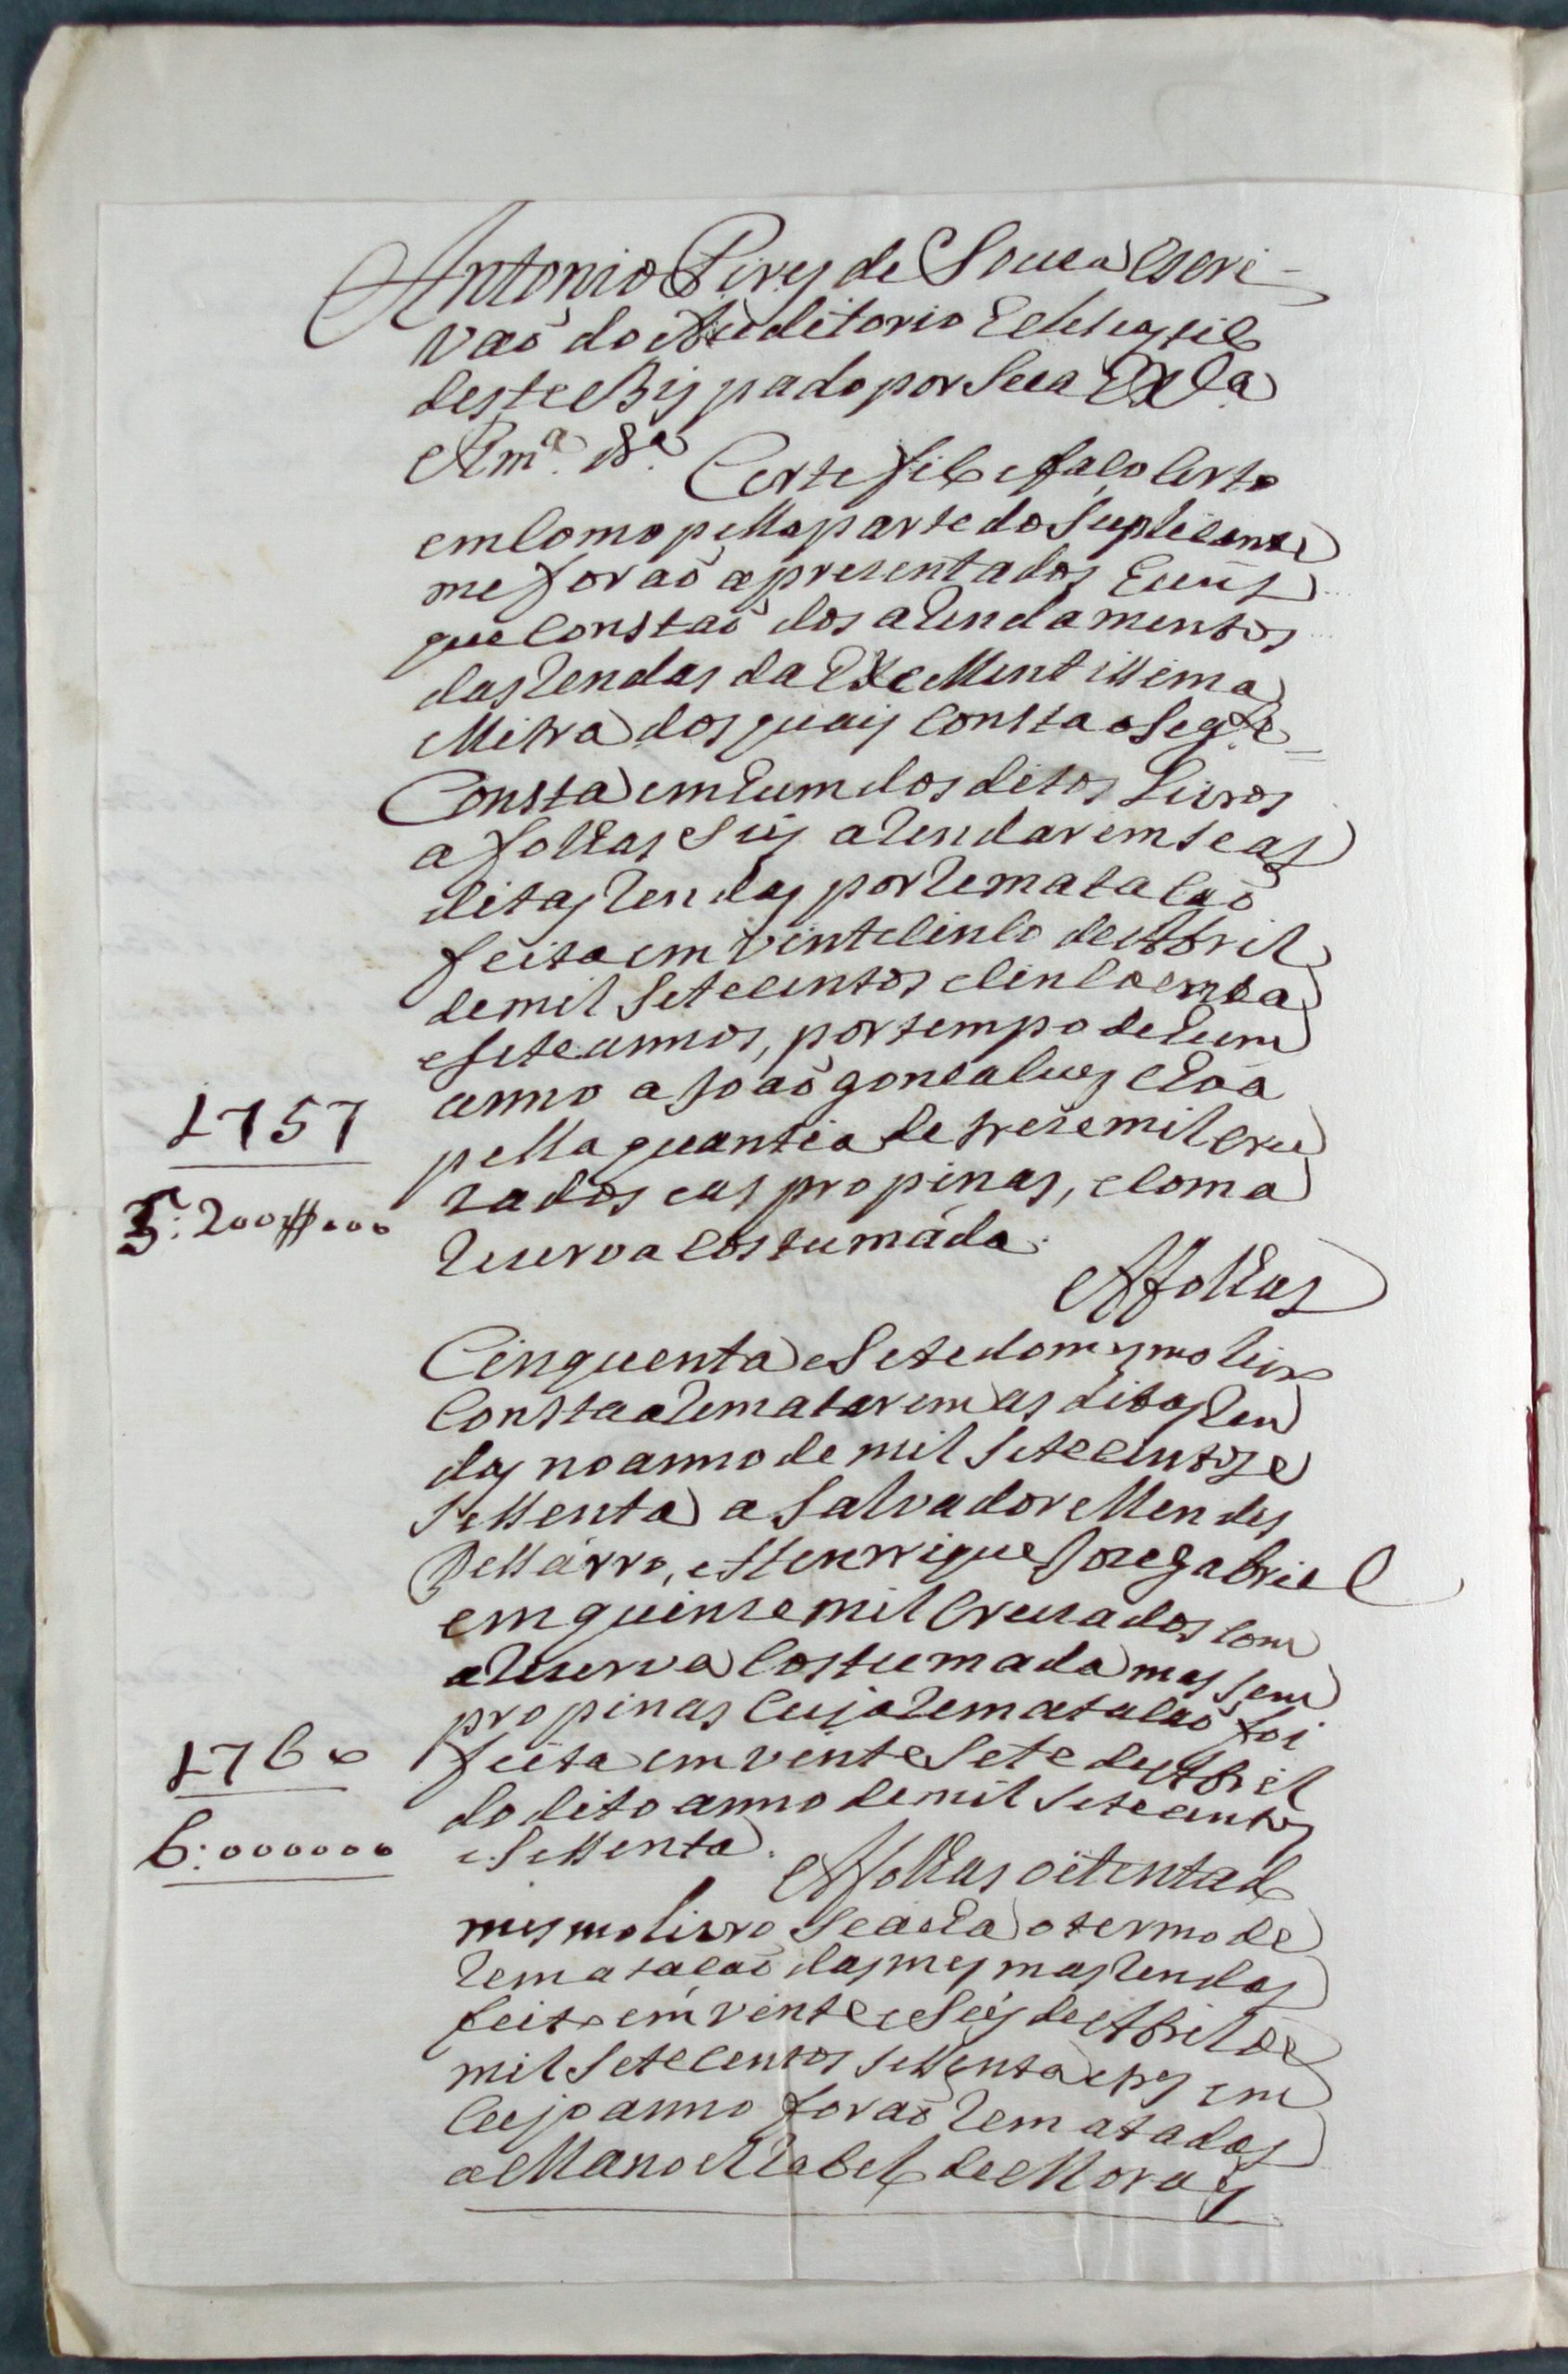 Antonio Pires de Souza escri-
vaõ do Auditorio Ecclesiastico
deste Bispado por Sua Exa.
Rma. &a. Certefico e faço certo
em como pella parte do Suplicante
me foraõ apresentados
que constaõ dos arendamentos
das rendas da Excellentissima
Mitra dos quais consta o Segte. =
Consta em hum dos ditos Livros
a folhas Seis arendaremse as
ditas rendas por rematacaõ
feita em vinte e cinco de Abril
de mil Setecentos e cincoenta
e sete annos, por tempo de hum
anno a Joaõ gonçalves
1757
pella quantia de treze mil cru
5: 200$000
zados e as propinas, e com a
reserva costumáda.
A folhas
Cinquenta e Sete do mesmo livro
Consta arematarem as ditas ren
das no anno de mil Setecentos e
sessenta a Salvador Mendes
Pessárro, e Henrrique Joze gabriel
em quinze mil Cruzados com
a reserva costumada mas sem
propinas cuja rematacaõ foi
1760
feita em vinte e Sete de Abril
do dito anno de mil Setecentos
6: 000000
e Sessenta.
A folhas oitenta do
mesmo livro Se acha o termo de
rematacaõ das mesmas rendas
feito em vinte e Seis de Abril de
mil Setecentos sessenta e tres em
cujo anno foraõ rematadas
a Manoel Rabelo de Morais